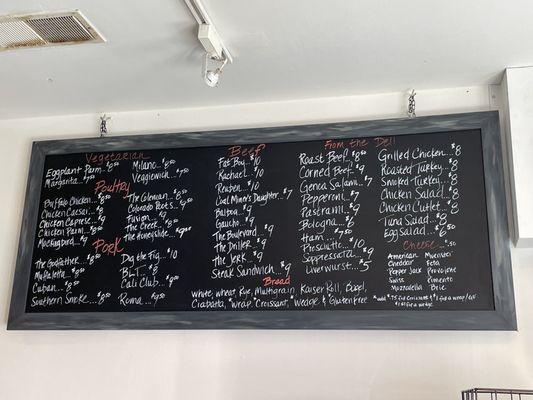 Vegetarian
Eggplant Parm..$8.50
Margarita..$7.50
Milano...$8.50
Veggiewich...$7.50
Poultry
Buffalo Chicken..$8.50
Chicken Caesar..$9
Chicken Caprese..$9
Chicken Parm..$8.50
Mockingbird..$9
The Glenian...$8.50
Colorado Pants..$9.50
Fusion...$9
The Creek...$8.50
The Honeyslide...$9
Pork
The Godfather...$8.50
Muffaletta...$8.50
Cuban...$8.50
Southern Smoke...$8.50
Dig the Fig...$10
BLT...$8.50
Cali Club...$9.50
Roma...$9.50
Beef
Fat Boy...$10
Rachael...$10
Reuben...$10
Coal Miner's Daughter..$7
Balboa...$9
Gaucho...$9
The Boulevard...$9
The Driller...$9
The Jerk...$9
Steak Sandwich...$9
From the Deli
Roast Beef...$8.50
Corned Beef...$9
Genoa Salami...$7
Pepperoni...$7
Pastrami...$9
Bologna...$6
Ham...$7.50
Prosciutto...$10
Soppressata...$9
Liverwurst...$5
Grilled Chicken...$8
Roasted Turkey...$8
Smoked Turkey...$8
Chicken Salad...$8
Chicken Cutlet...$8
Tuna Salad...$8
Egg Salad...$6
Cheese...$.50
American
Cheddar
Pepper Jack
Swiss
Mozzarella
Muenster
Feta
Provolone
Pimento
Brie
Bread
White, Wheat, Rye, Multigrain, Kaiser Roll, Bagel,
Ciabatta, *Wrap, *Croissant, *Wedge & *Gluten Free
*add $.75 for Croissant & $1 for a wrap/GF